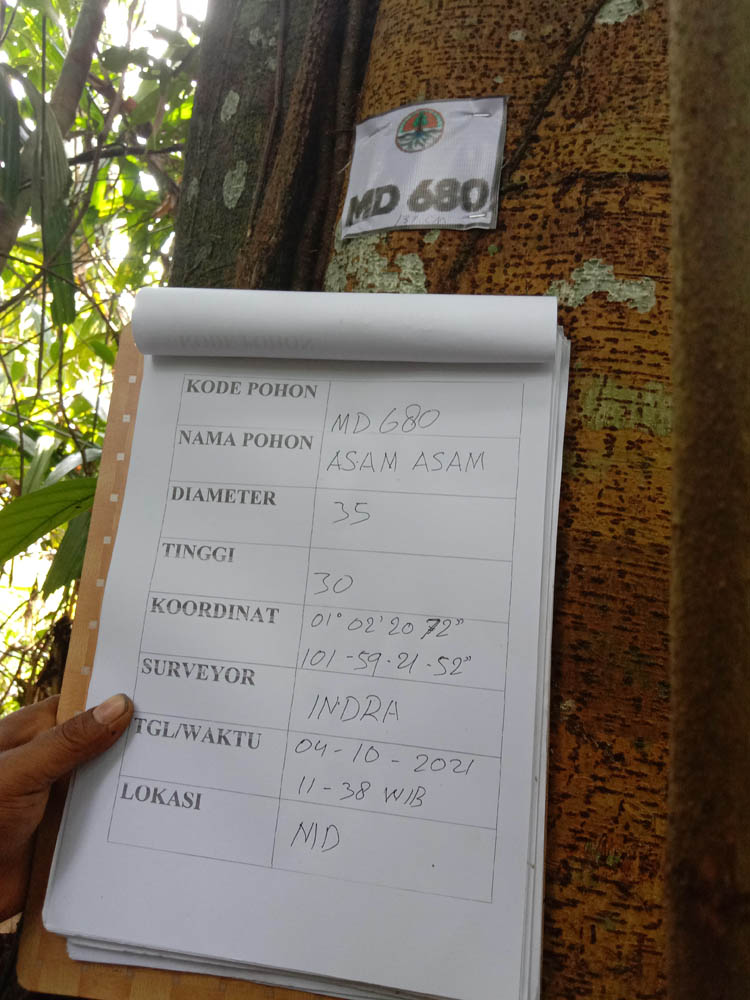 MD 680
KODE POHON
MD 680
NAMA POHON
ASAM ASAM
DIAMETER
35
TINGGI
30
KOORDINAT
01° 02' 20 72"
101-59-21-52"
SURVEYOR
INDRA
TGL/WAKTU
04-10-2021
11-38 WIB
LOKASI
MD